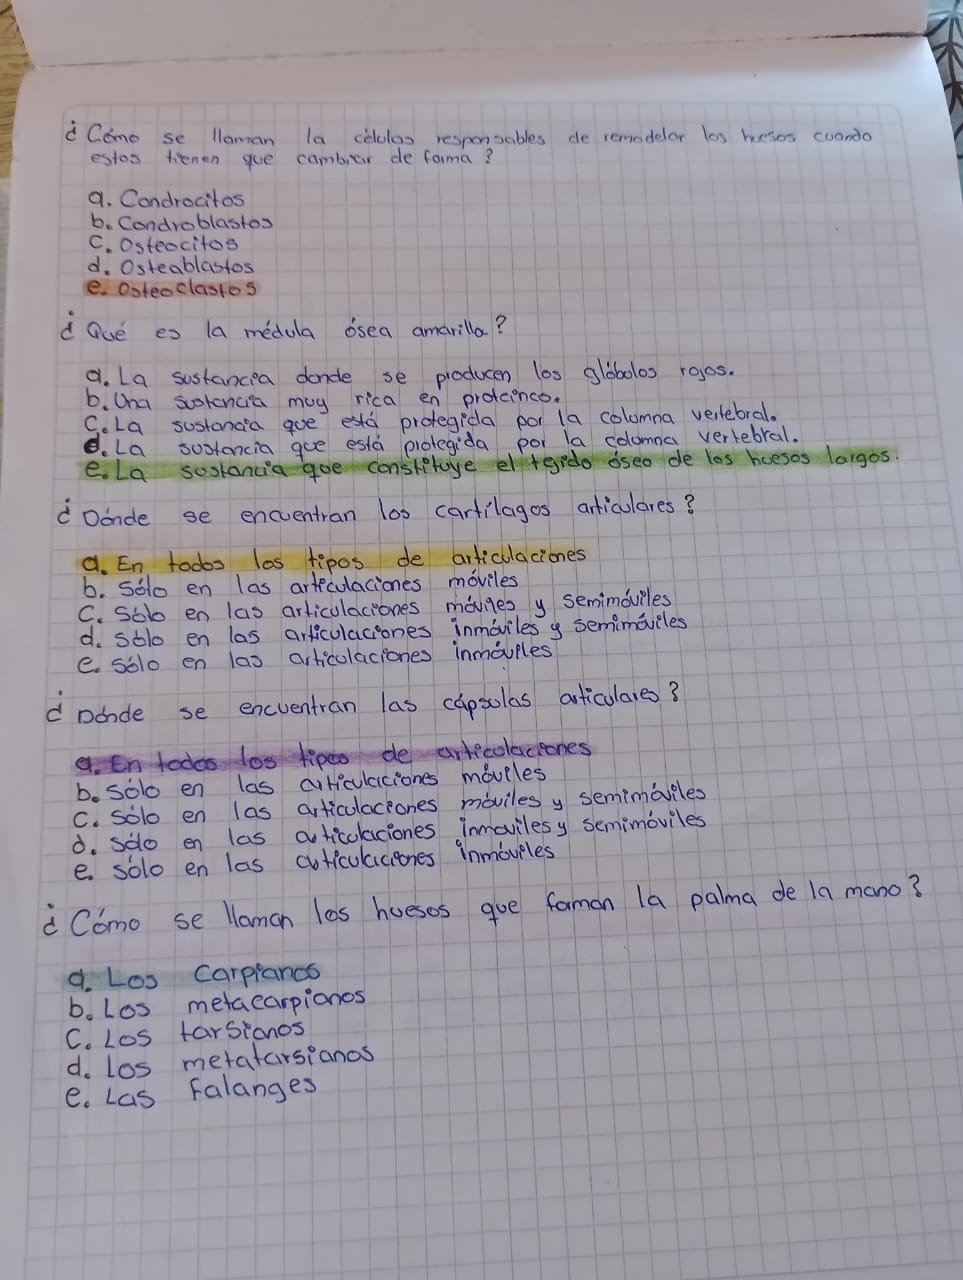 ¿Cómo se llaman la células responsables de remodelar los huesos cuando
estos tienen que cambiar de forma?
a. Condrocitos
b. Condroblastos
c. Osteocitos
d. Osteablastos
e. Osteoclastos
¿Qué es la médula ósea amarilla?
a. La sustancia donde se producen los glóbulos rojos.
b. Una sustancia muy rica en proteínco.
c. La sustancia que está protegida por la columna vertebral.
d. La sustancia que está protegida por la columna vertebral.
e. La sustancia que constituye el tejido óseo de los huesos largos.
¿Dónde se encuentran los cartílagos articulares?
a. En todos los tipos de articulaciones
b. Sólo en las articulaciones móviles
c. Sólo en las articulaciones móviles y semimóviles
d. sólo en las articulaciones inmóviles y semimóviles
e. sólo en las articulaciones inmóviles
¿Dónde se encuentran las cápsulas articulares?
a. En todos los tipos de articulaciones
b. sólo en las articulaciones móviles
c. sólo en las articulaciones móviles y semimóviles
d. sólo en las articulaciones inmoviles y semimóviles
e. sólo en las articulaciones inmóviles
¿Cómo se llaman los huesos que forman la palma de la mano?
a. Los carpianos
b. Los metacarpianos
c. Los tarsianos
d. Los metatarsianos
e. Las falanges